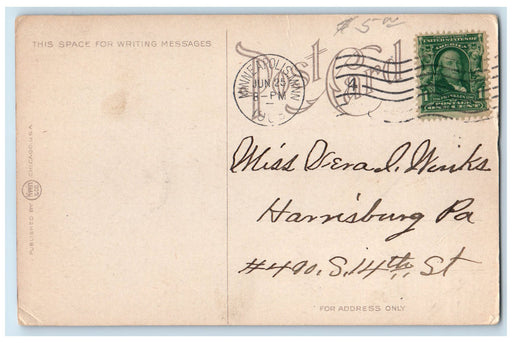 $5.00
THIS SPACE FOR WRITING MESSAGES
Post Card
MINNEAPOLIS, MINN.
JUN 25
8-PM
UNITED STATES OF AMERICA
POSTAGE
ONE CENT
Miss Vera I. Winks
Harrisburg Pa
#490. S. 14th. St
FOR ADDRESS ONLY
PUBLISHED BY
CHICAGO, U.S.A.